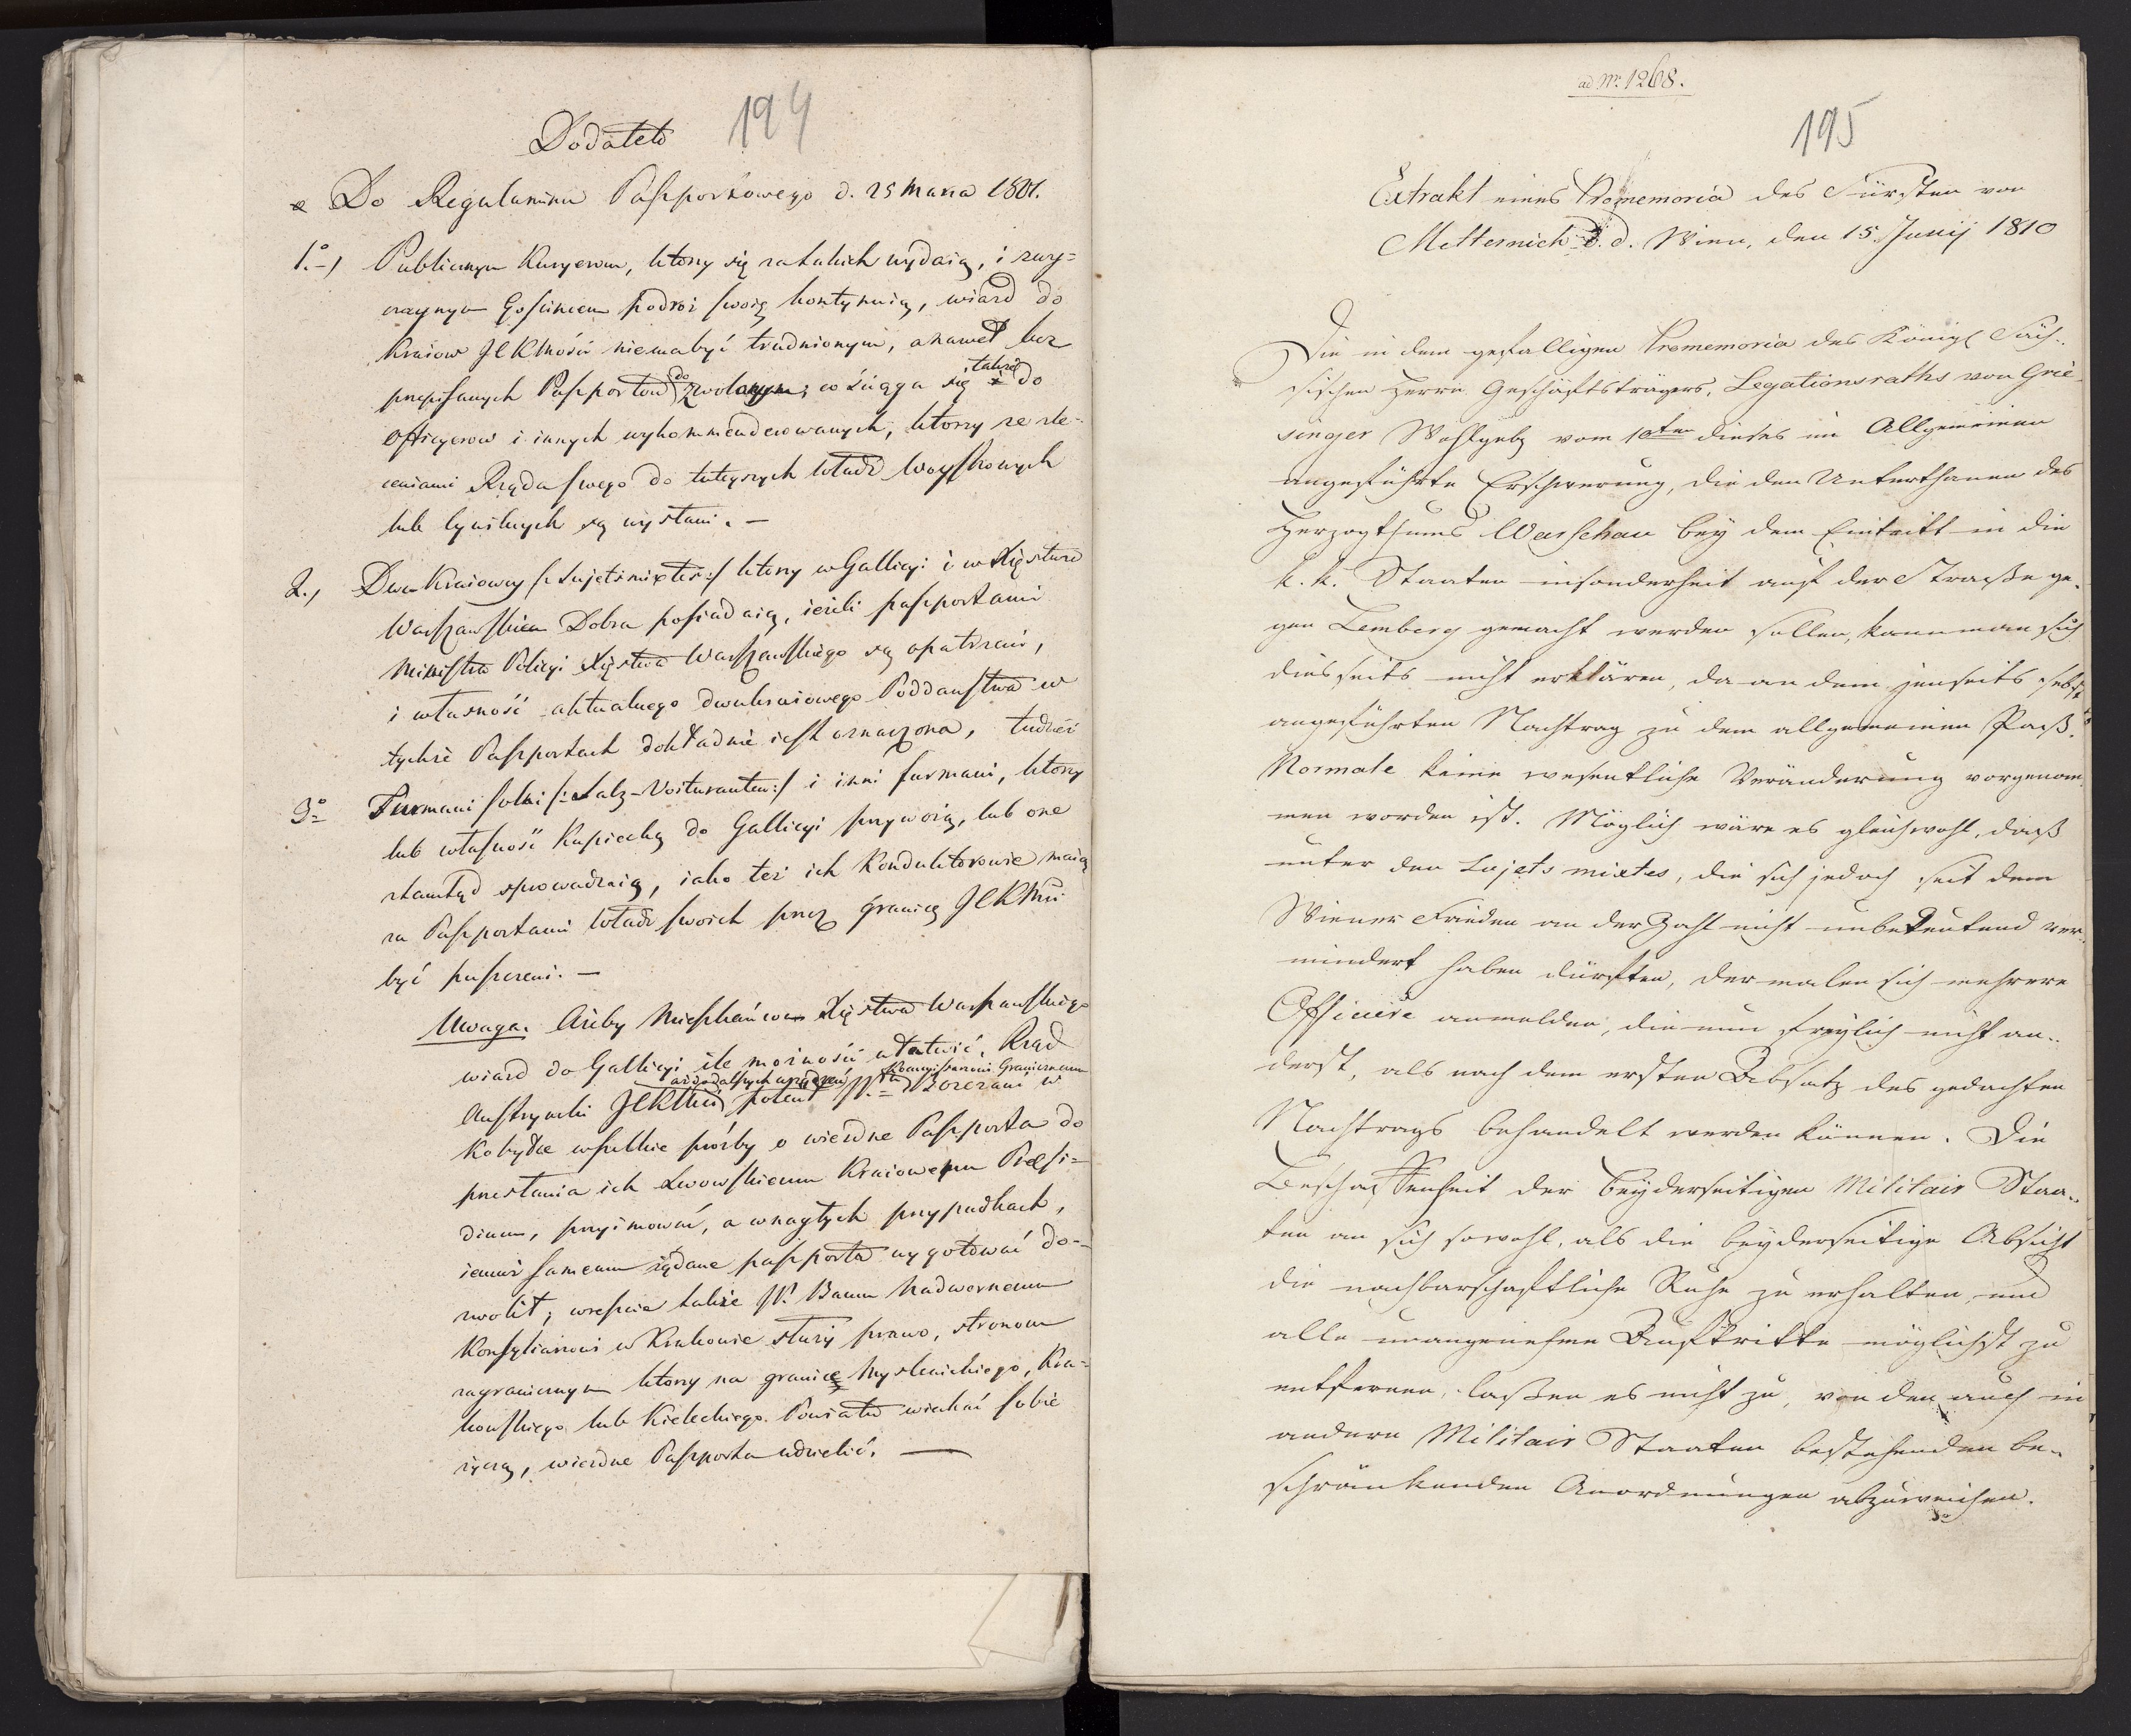 Dodatek
194
Do Regulaminu Paszportowego d. 25 Marca 1801.
1.°-, Publicznym Kuryerom, ktorzy się za takich wydaią, i zwy=
czaynym Gościncem podroż swoię kontynuią, wiazd do
Kraiow JCKMości niema być trudnionym, a nawet bez
przepisanych Paszportow dozwolonym; co ściąga się także do
Officyerow i innych wykommenderowanych, ktorzy ze zle-
ceniami Rządu swego do tuteyszych Władz Woyskowych
lub Cywilnych są wysłani. —
2., Dwu Kraiowcy /: Sujets mixtes :/ ktorzy w Gallicyi i w Xięstwie
Warszawskiem Dobra posiadaią, ieżeli paszportami
Ministra Policyi Xięstwa Warszawskiego są opatrzeni,
i własność aktualnego dwukraiowego Poddaństwa w
tychże Paszportach dokładnie iest oznaczona, tudzież
3° Furmani solni /: Salz-Voituranten :/ i inni furmani, ktorzy
lub własność Kupiecką do Gallicyi przywożą, lub one
ztamtąd sprowadzaią, iako też ich Konduktorowie maią
za Paszportami Władz swoich przez granicę JCKMci
być puszczeni. —
Uwaga. Ażeby Mieszkańcom Xięstwa Warszawskiego
wiazd do Gallicyi ile możności ułatwić, Rząd
Austryacki JCKMci aż do dalszych urządzeń polecił JP. Kommissarzowi Granicznemu
w
Kobyłce wszelkie prośby o wiezdne Paszporta do
przesłania ich Lwowskiemu Kraiowemu Prezy=
dium, przyimować, a w nagłych przypadkach,
iemuż samemu żądane paszporta wygotować do-
zwolił; wreszcie także JP. Baum Nadwornemu
Konsyliarzowi w Krakowie służy prawo, stronom
zagranicznym ktorzy na granicę Myslenickiego, Kra=
kowskiego lub Kieleckiego Powiatu wiechać sobie
życzą, wiezdne Paszporta udzielić. —
ad Nr. 1268.
195
Extrakt eines Promemoria des Fürsten von
Metternich d. d. Wien, den 15. Junij 1810
Die in dem gefälligen Promemoria des Königl Säch-
sischen Herrn Geschäftsträgers, Legationsraths von Grie-
singer Wohlgeb vom 10ten dieses im Allgemeinen
angeführte Erschwerung, die den Unterthanen des
Herzogthums Warschau bey dem Eintritt in die
k. k. Staaten insonderheit auf der Straße ge-
gen Lemberg gemacht werden sollen, kann man sich
diesseits nicht erklären, da an dem jenseits selbst
angeführten Nachtrag zu dem allgemeinen Paß-
Normale keine wesentliche Veränderung vorgenom-
men worden ist. Möglich wäre es gleichwohl, daß
unter den Sujets mixtes, die sich jedoch seit dem
Wiener Frieden an der Zahl nicht unbedeutend ver-
mindert haben dürften, dermalen sich mehrere
Officiere anmelden, die nun freylich nicht an-
derst, als nach dem ersten Absatz des gedachten
Nachtrags behandelt werden können. Die
Beschaffenheit der beyderseitigen Militair Staa-
ten an sich sowohl, als die beyderseitige Absicht
die nachbarschaftliche Ruhe zu erhalten, und
alle unangenehme Auftritte möglichst zu
entfernen, laßen es nicht zu, von den auch in
andern Militair Staaten bestehenden be-
schränkenden Anordnungen abzuweichen.